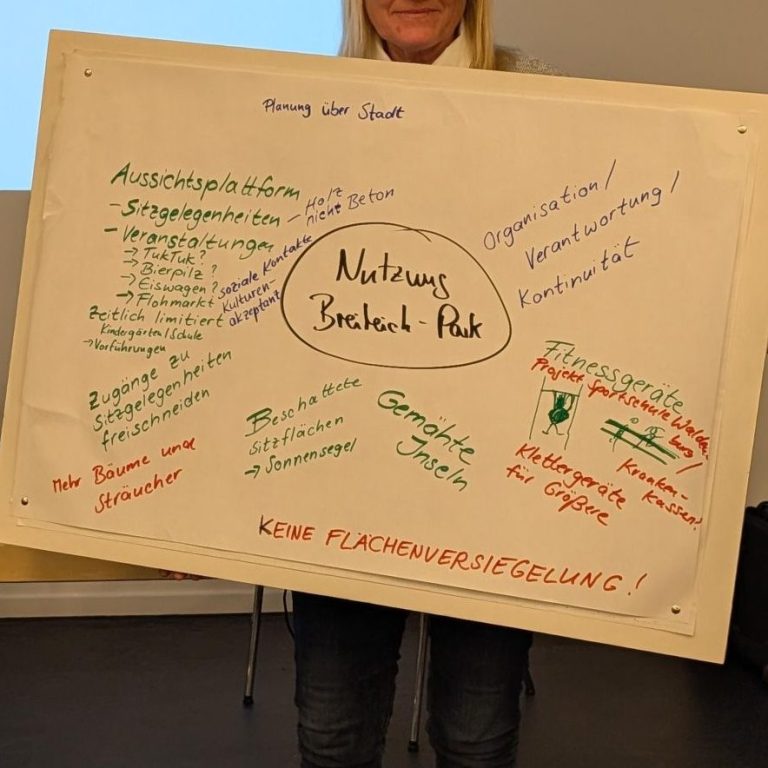 Planung über Stadt
Aussichtsplattform
- Sitzgelegenheiten
- Holz
nicht Beton
- Veranstaltungen
→ TukTuk?
→ Bierpilz?
→ Eiswagen?
→ Flohmarkt
soziale Kontakte
Kulturen-
akzeptanz
zeitlich limitiert
Kindergärten/Schule
→ Vorführungen
Zugänge zu
Sitzgelegenheiten
freischneiden
Mehr Bäume und
Sträucher
Nutzung
Breiteich-Park
Organisation/
Verantwortung/
Kontinuität
Beschattete
Sitzflächen
→ Sonnensegel
Gemähte
Inseln
Fitnessgeräte
Projekt Sportschule Walden-
burg/
Kranken-
kassen?
Klettergeräte
für Größere
KEINE FLÄCHENVERSIEGELUNG!